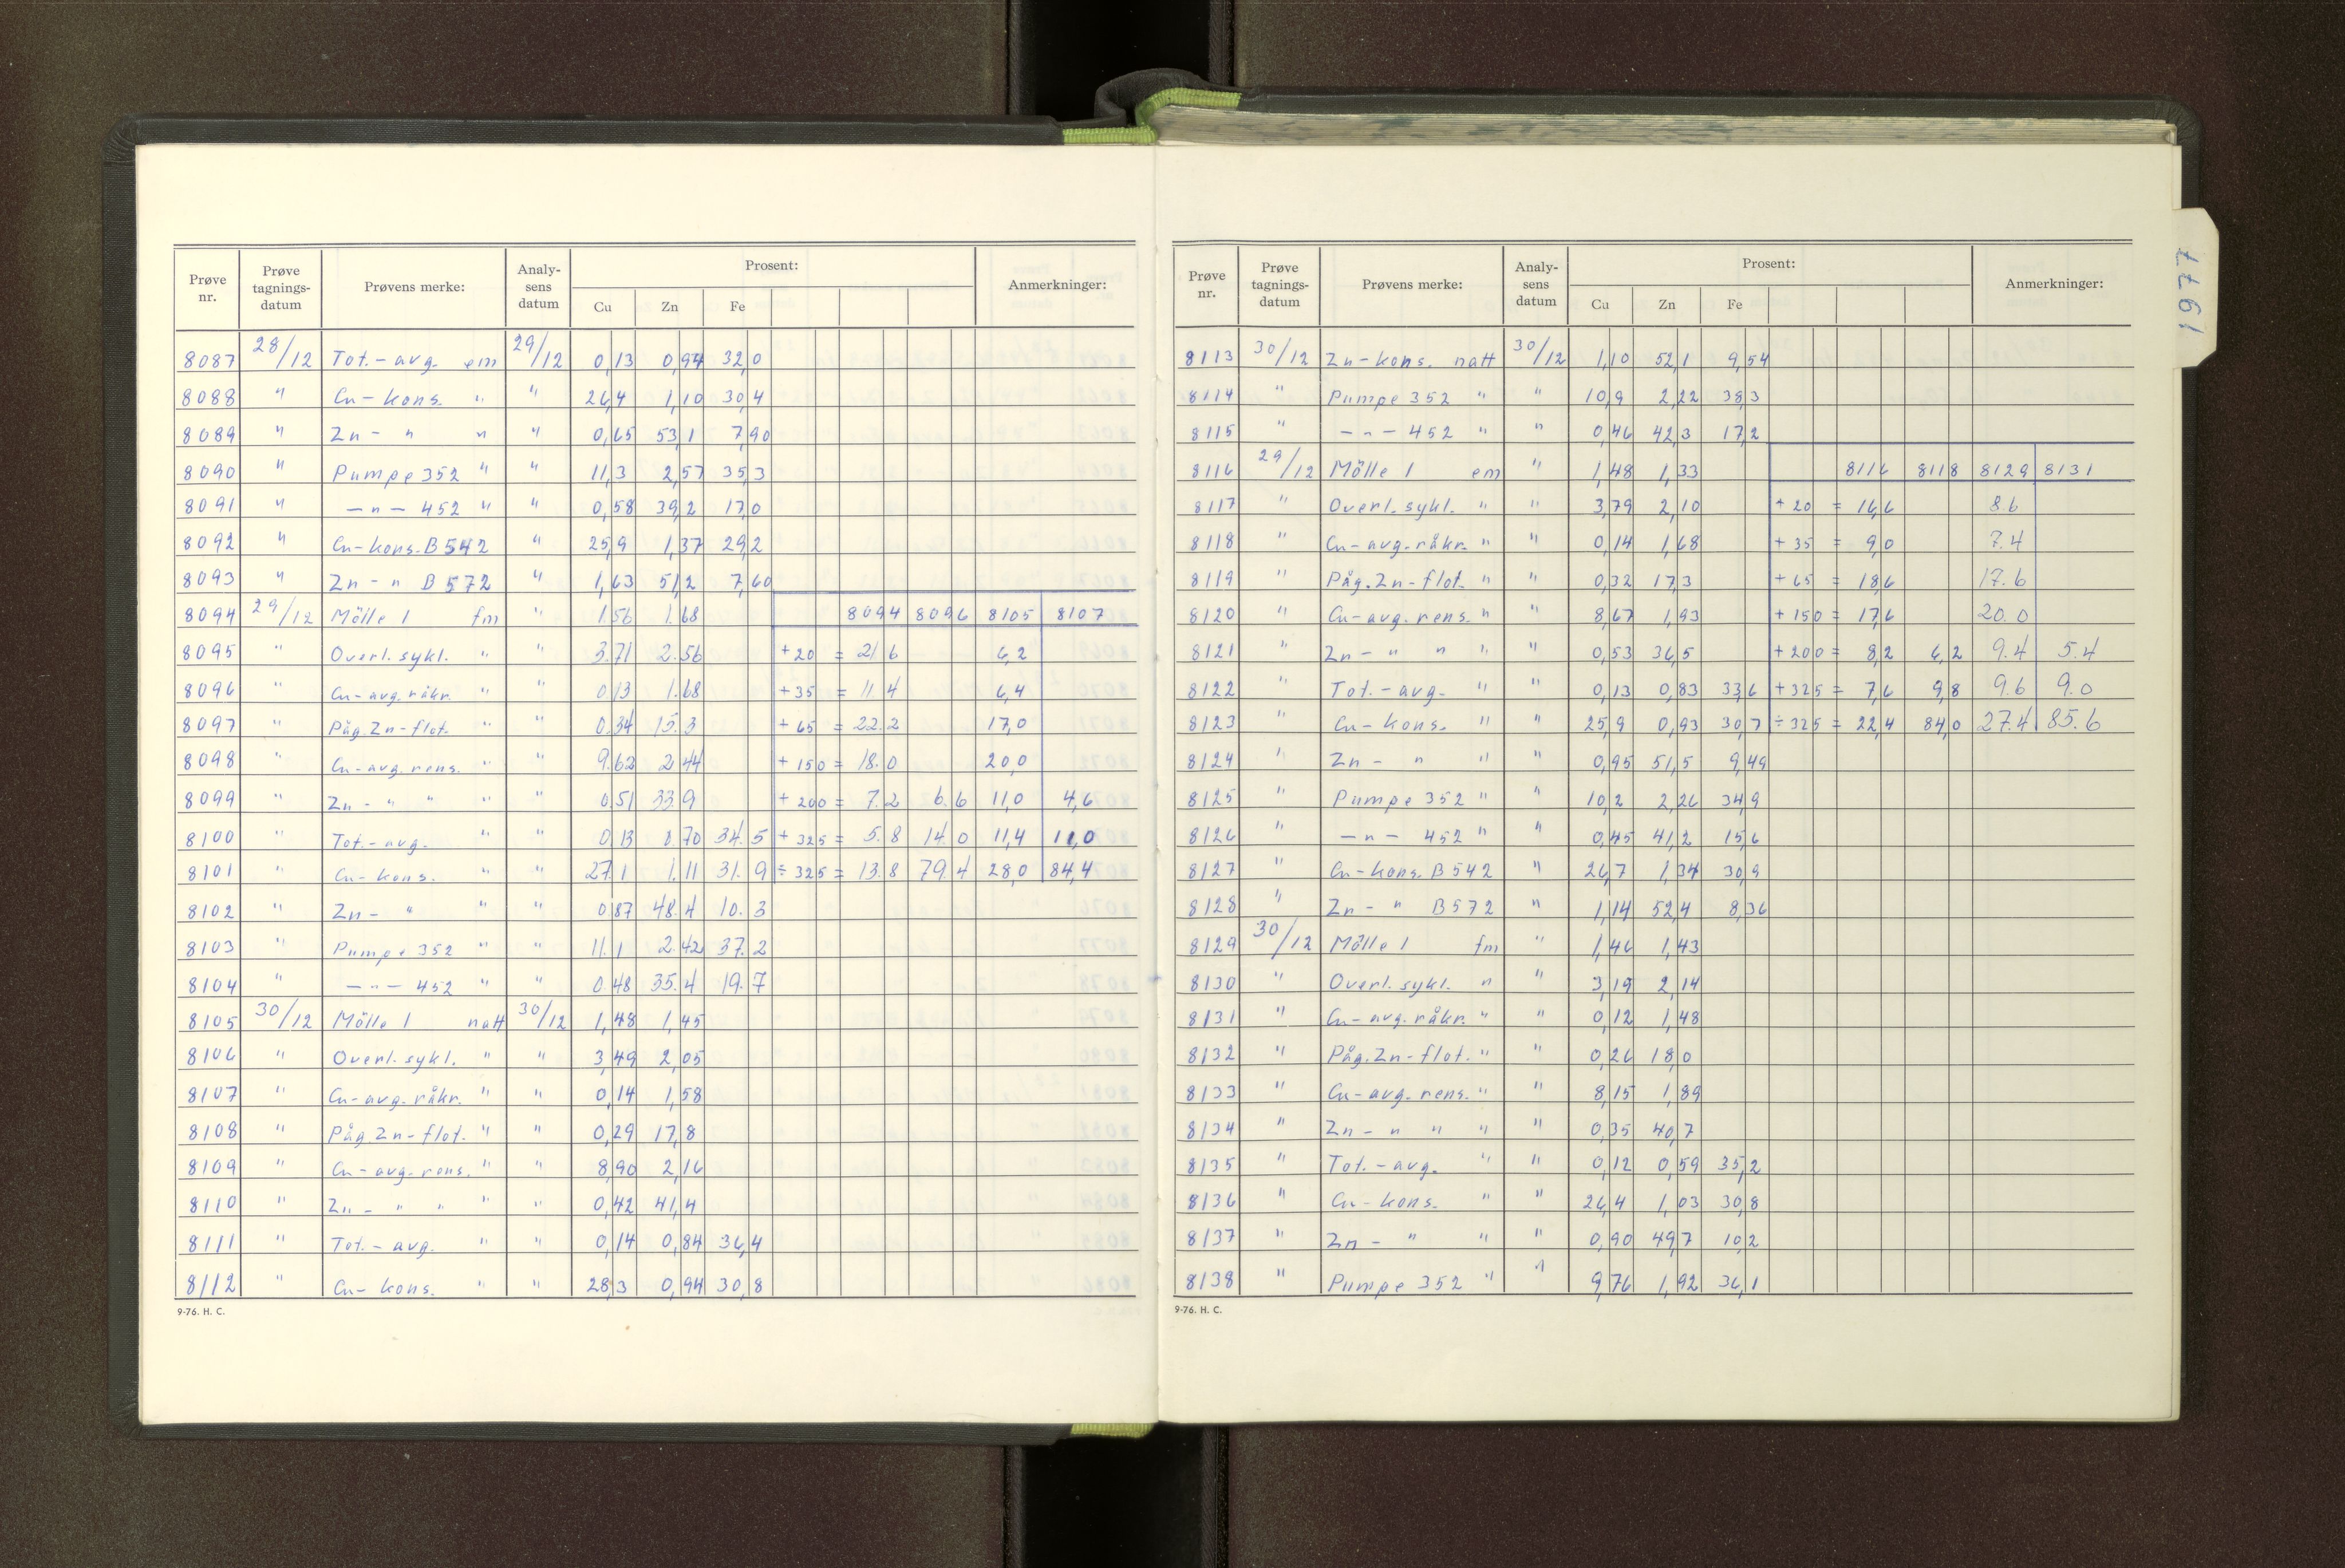 Prøve nr. Prøve tagnings-datum Prøvens merke: Analy-sens datum Prosent: Anmerkninger:
Cu Zn Fe
8087 28/12 Tot.-avg. em 29/12 0,13 0,94 32,0
8088 " Cu-kons. " " 26,4 1,10 30,4
8089 " Zn- " " " 0,65 53,1 7,90
8090 " Pumpe 352 " " 11,3 2,57 35,3
8091 " -"- 452 " " 0,58 39,2 17,0
8092 " Cu-kons. B 542 " 25,9 1,37 29,2
8093 " Zn- " B 572 " 1,63 51,2 7,60
8094 29/12 Mölle 1 fm " 1.56 1.68 8094 8096 8105 8107
8095 " Overl. sykl. " " 3.71 2.56 +20 = 21 6 6,2
8096 " Cu-avg. råkr. " " 0 13 1.68 +35 = 11 4 6,4
8097 " Påg. Zn-flot. " " 0.34 15.3 +65 = 22.2 17,0
8098 " Cu-avg. rens. " " 9.62 2 44 +150 = 18.0 20,0
8099 " Zn- " " " " 0.51 33 9 +200 = 7.2 6.6 11,0 4,6
8100 " Tot.-avg. " " 0 13 0.70 34.5 +325 = 5.8 14.0 11,4 11,0
8101 " Cu-kons. " " 27.1 1.11 31.9 ÷325 = 13.8 79.4 28,0 84,4
8102 " Zn- " " " 0.87 48.4 10.3
8103 " Pumpe 352 " " 11.1 2.42 37.2
8104 " -"- 452 " " 0.48 35.4 19.7
8105 30/12 Mölle 1 natt 30/12 1,48 1,45
8106 " Overl. sykl. " " 3,49 2,05
8107 " Cu-avg. råkr. " " 0,14 1,58
8108 " Påg Zn-flot. " " 0,29 17,8
8109 " Cu-avg. rens. " " 8,90 2,16
8110 " Zn- " " " " 0,42 41,4
8111 " Tot.-avg. " " 0,14 0,84 36,4
8112 " Cu-kons. " " 28,3 0,94 30,8
9-76. H. C.
Prøve nr. Prøve tagnings-datum Prøvens merke: Analy-sens datum Prosent: Anmerkninger:
Cu Zn Fe
8113 30/12 Zn-kons. natt 30/12 1,10 52,1 9,54
8114 " Pumpe 352 " " 10,9 2,22 38,3
8115 " -"- 452 " " 0,46 42,3 17,2
8116 29/12 Mölle 1 em " 1,48 1,33 8116 8118 8129 8131
8117 " Overl. sykl. " " 3,79 2,10 +20 = 16,6 8.6
8118 " Cu-avg. råkr. " " 0,14 1,68 +35 = 9,0 7.4
8119 " Påg. Zn-flot. " " 0,32 17,3 +65 = 18,6 17.6
8120 " Cu-avg. rens. " " 8,67 1,93 +150 = 17,6 20.0
8121 " Zn- " " " " 0,53 36,5 +200 = 8,2 6,2 9.4 5.4
8122 " Tot.-avg. " " 0,13 0,83 33,6 +325 = 7,6 9,8 9.6 9.0
8123 " Cu-kons. " " 25,9 0,93 30,7 ÷325 = 22,4 84,0 27.4 85.6
8124 " Zn- " " " 0,95 51,5 9,49
8125 " Pumpe 352 " " 10,2 2,26 34,9
8126 " -"- 452 " " 0,45 41,2 15,6
8127 " Cu-kons. B 542 " 26,7 1,34 30,9
8128 " Zn- " B 572 " 1,14 52,4 8,36
8129 30/12 Mölle 1 fm " 1,46 1,43
8130 " Overl. sykl. " " 3,19 2,14
8131 " Cu-avg. råkr. " " 0,12 1,48
8132 " Påg. Zn-flot. " " 0,26 18,0
8133 " Cu-avg. rens. " " 8,15 1,89
8134 " Zn- " " " " 0,35 40,7
8135 " Tot.-avg. " " 0,12 0,59 35,2
8136 " Cu-kons. " " 26,4 1,03 30,8
8137 " Zn- " " " 0,90 49,7 10,2
8138 " Pumpe 352 " " 9,76 1,92 36,1
9-76. H. C.
1977